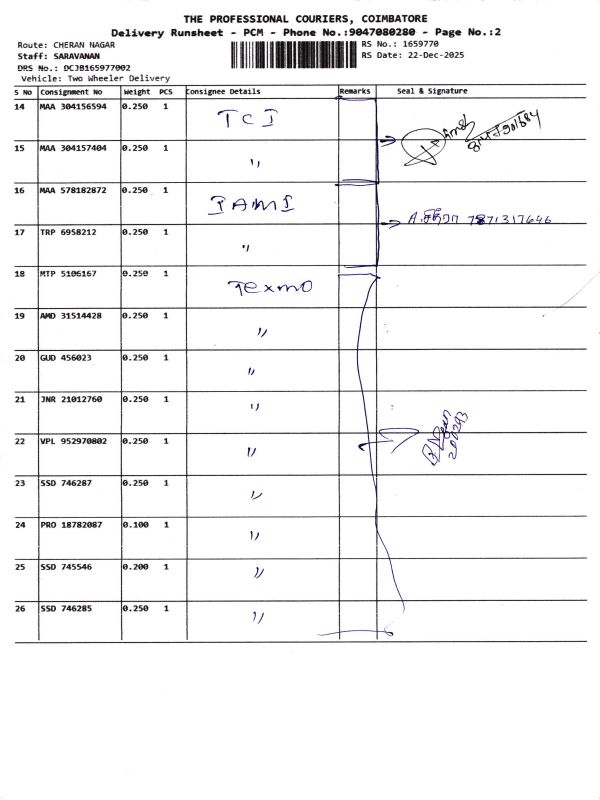 THE PROFESSIONAL COURIERS, COIMBATORE
Delivery Runsheet - PCM - Phone No.:9047080280 - Page No.:2
Route: CHERAN NAGAR RS No.: 1659770
Staff: SARAVANAN RS Date: 22-Dec-2025
DRS No.: DCJB165977002
Vehicle: Two Wheeler Delivery
S No Consignment No Weight PCS Consignee Details Remarks Seal & Signature
14 MAA 304156594 0.250 1 TCI
15 MAA 304157404 0.250 1 "
16 MAA 578182872 0.250 1 IAMI
17 TRP 6958212 0.250 1 " 7871317646
18 MTP 5106167 0.250 1 Texmo
19 AMD 31514428 0.250 1 "
20 GUD 456023 0.250 1 "
21 JNR 21012760 0.250 1 "
22 VPL 952970802 0.250 1 " 200293
23 SSD 746287 0.250 1 "
24 PRO 18782087 0.100 1 "
25 SSD 745546 0.200 1 "
26 SSD 746285 0.250 1 "